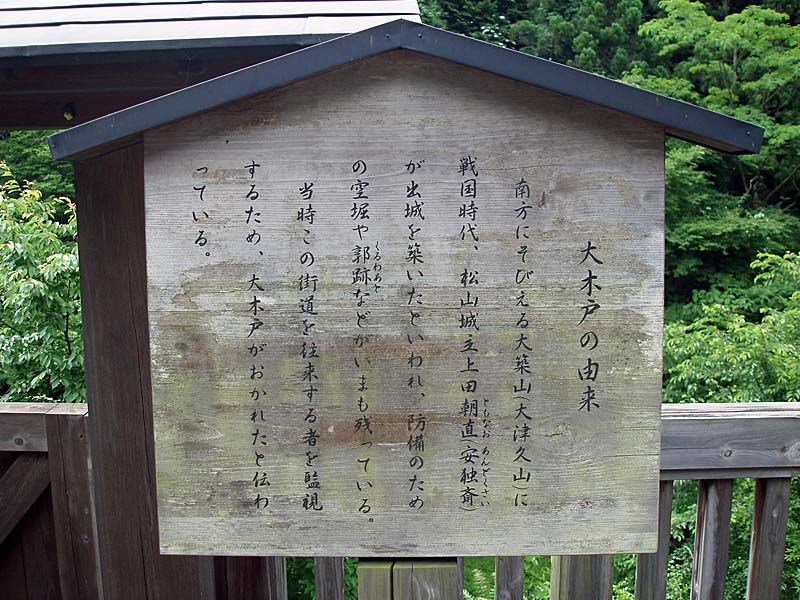 大木戸の由来
南方にそびえる大築山(大津久山)に
戦国時代、松山城主上田朝直(安独斎)
ともなお あんどくさい
が出城を築いたといわれ、防備のため
の空堀や郭跡などがいまも残っている。
くるわあと
当時この街道を往来する者を監視
するため、大木戸がおかれたと伝わ
っている。